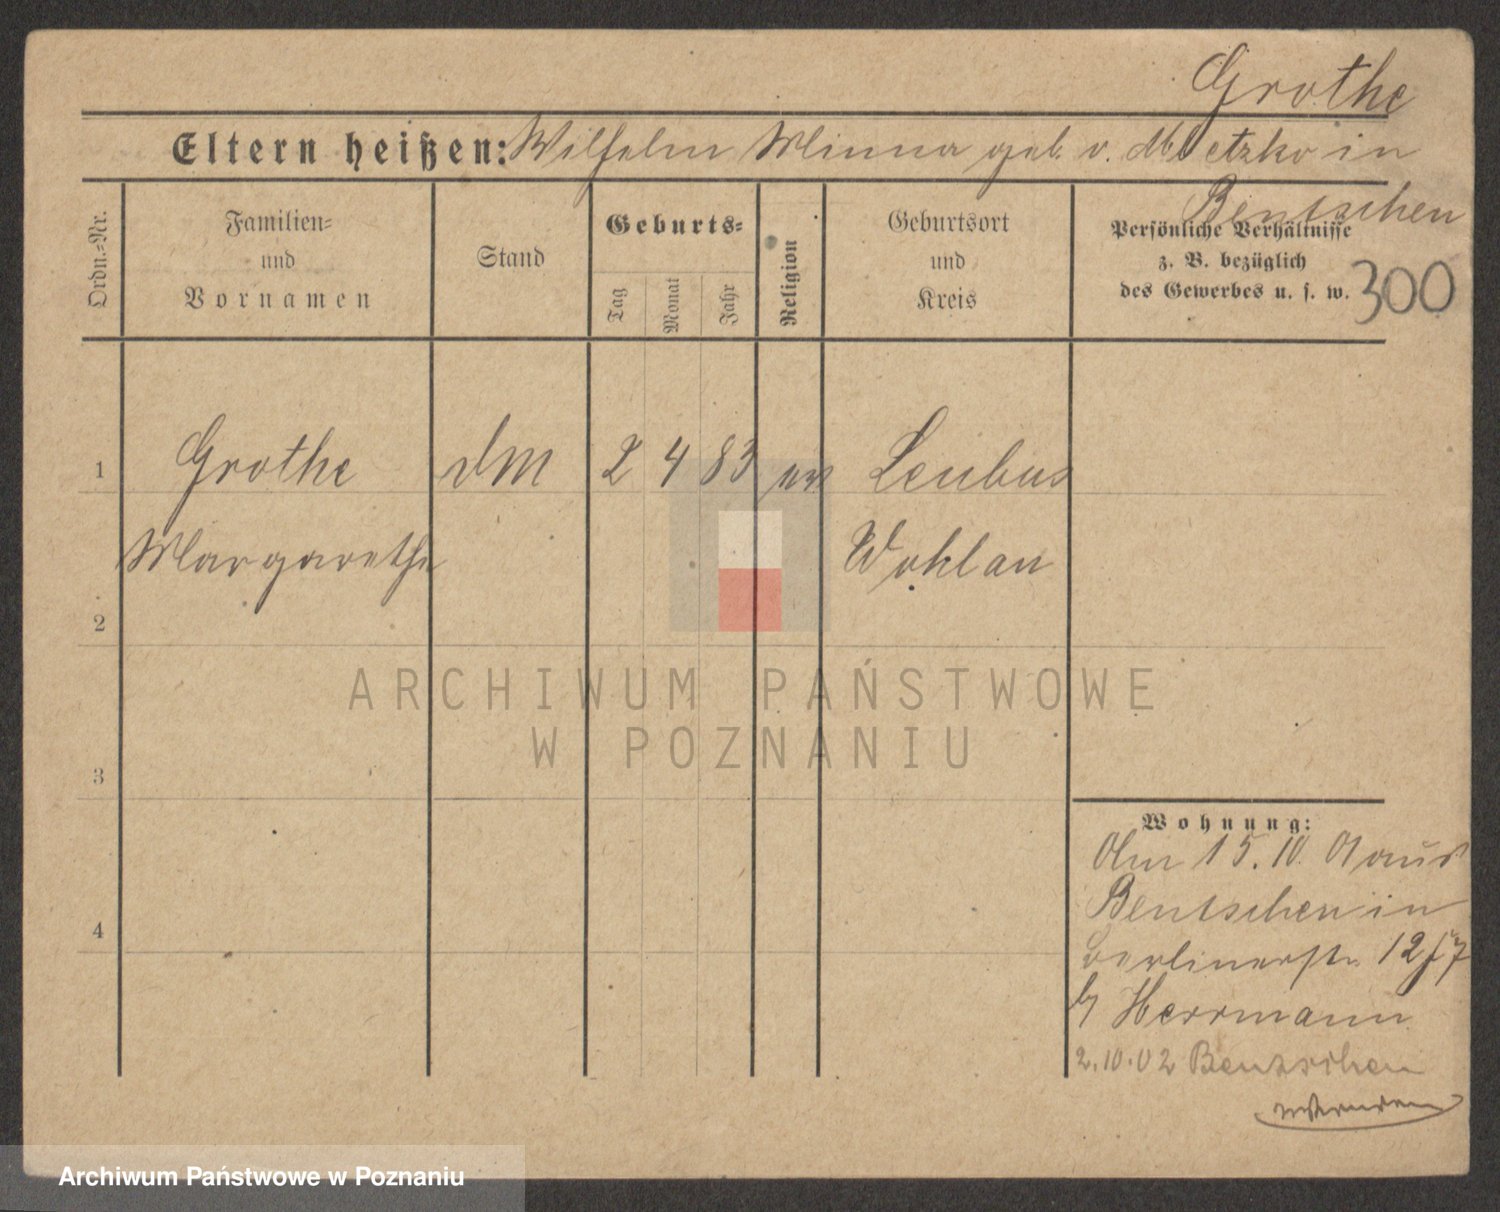 Grothe
Eltern heißen: Wilhelm Minna geb. v. in
Bentschen
Ordn.-Nr.
Familien-
und
Vornamen
Stand
Geburts-
Tag
Monat
Jahr
Religion
Geburtsort
und
Kreis
Persönliche Verhältnisse
z. B. bezüglich
des Gewerbes u. s. w.
300
1 Grothe 2 4 83 ev Leubus
Margarethe Wohlau
2
3
4
ARCHIWUM PAŃSTWOWE
W POZNANIU
Wohnung:
15.10. 01 aus
Bentschen in
Berlinerstr 12
b/ Herrmann
2.10.02 Bentschen
Archiwum Państwowe w Poznaniu